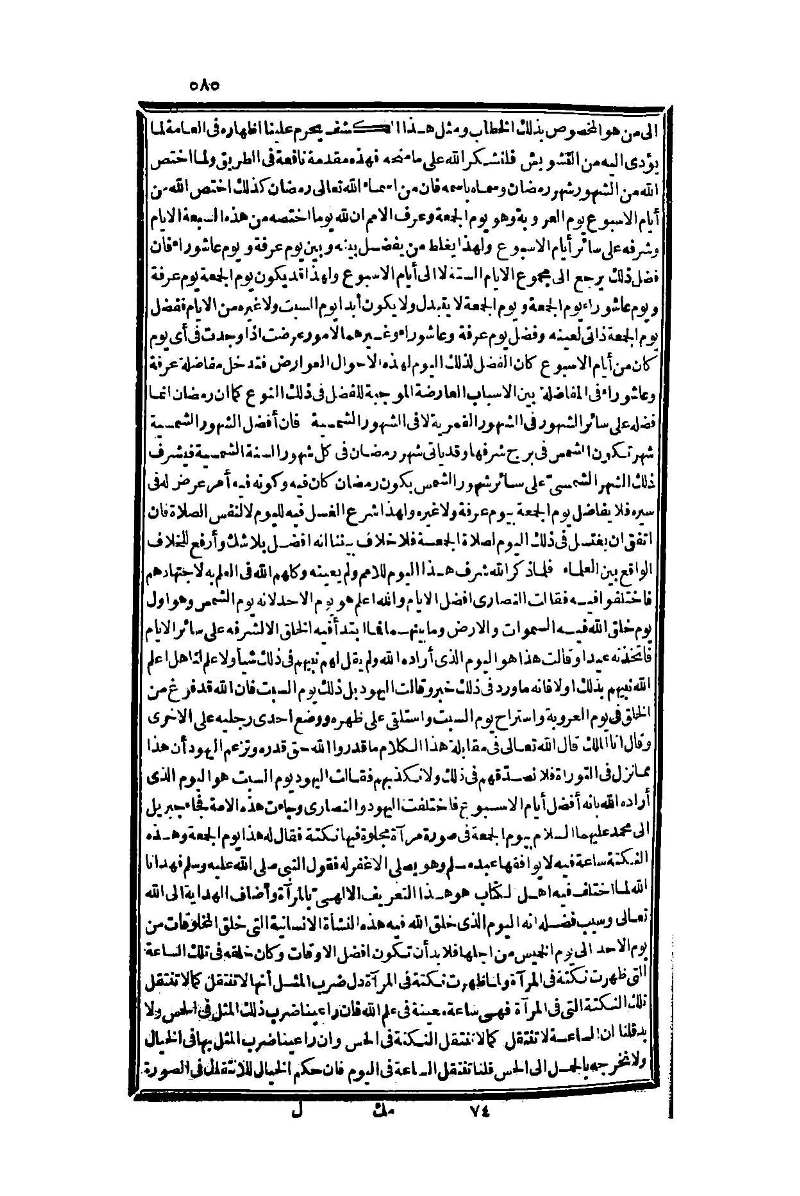 ٥٨٥
الى من هو المخصوص بذلك الخطاب ومثل هذا الكشف يحرم علينا اظهاره فى العامة لما
يؤدى اليه من التشويش فلنشكر الله على ما منحه فهذه مقدمة نافعة فى الطريق ولما اختص
الله من الشهور شهر رمضان وسماه باسمه فان من اسماء الله تعالى رمضان كذلك اختص الله من
أيام الاسبوع يوم العروبة وهو يوم الجمعة وعرف الامم ان لله يوما اختصه من هذه السبعة الايام
وشرفه على سائر أيام الاسبوع ولهذا يغلط من يفضل بينه وبين يوم عرفة ويوم عاشوراء فان
فضل ذلك يرجع الى مجموع الايام السنة لا الى أيام الاسبوع ولهذا قد يكون يوم الجمعة يوم عرفة
ويوم عاشوراء يوم الجمعة ويوم الجمعة لا يتبدل ولا يكون أبدا يوم السبت ولا غيره من الايام ففضل
يوم الجمعة ذاتى لعينه وفضل يوم عرفة وعاشوراء وغيرهما لامور عرضت اذا وجدت فى أى يوم
كان من أيام الاسبوع كان الفضل لذلك اليوم لهذه الاحوال العوارض فتدخل مفاضلة عرفة
وعاشوراء فى المفاضلة بين الاسباب العارضة الموجبة للفضل فى ذلك النوع كما ان رمضان انما
فضله على سائر الشهور فى الشهور القمرية لا فى الشهور الشمسية فان أفضل الشهور الشمسية
شهر تكون الشمس فى برج شرفها وقد يأتى شهر رمضان فى كل شهور السنة الشمسية فيشرف
ذلك الشهر الشمسى على سائر شهور الشمس بكون رمضان كان فيه وكونه فيه أمر عرض له فى
سيره فلا يفاضل يوم الجمعة بيوم عرفة ولا غيره ولهذا شرع الغسل فيه لليوم لا لنفس الصلاة فان
اتفق ان يغتسل فى ذلك اليوم لصلاة الجمعة فلا خلاف بيننا انه افضل بلا شك وأرفع للخلاف
الواقع بين العلماء فلما ذكر الله شرف هذا اليوم للامم ولم يعينه وكلهم الله فى العلم به لاجتهادهم
فاختلفوا فيه فقالت النصارى افضل الايام والله اعلم هو يوم الاحد لانه يوم الشمس وهو اول
يوم خلق الله فيه السموات والارض وما بينهما فما ابتدأ فيه الخلق الا لشرفه على سائر الايام
فاتخذته عيدا وقالت هذا هو اليوم الذى أراده الله ولم يقل لهم نبيهم فى ذلك شيأ ولا علم لنا هل اعلم
الله نبيهم بذلك اولا فانه ما ورد فى ذلك خبر وقالت اليهود بل ذلك يوم السبت فان الله قد فرغ من
الخلق فى يوم العروبة واستراح يوم السبت واستلقى على ظهره ووضع احدى رجليه على الاخرى
وقال انا الملك قال الله تعالى فى مقابلة هذا الكلام ما قدروا الله حق قدره وتزعم اليهود أن هذا
مما نزل فى التوراة فلا نصدقهم فى ذلك ولا نكذبهم فقالت اليهود يوم السبت هو اليوم الذى
أراده الله بانه أفضل أيام الاسبوع فاختلفت اليهود والنصارى وجاءت هذه الامة فجاء جبريل
الى محمد عليهما السلام بيوم الجمعة فى صورة مرآة مجلوة فيها نكتة فقال له هذا يوم الجمعة وهذه
النكتة ساعة فيه لا يوافقها عبد مسلم وهو يصلى الا غفر له فقول النبى صلى الله عليه وسلم فهدانا
الله لما اختلف فيه اهل الكتاب هو هذا التعريف الالهى بالمرآة وأضاف الهداية الى الله
تعالى وسبب فضله انه اليوم الذى خلق الله فيه هذه النشأة الانسانية التى خلق المخلوقات من
يوم الاحد الى يوم الخميس من اجلها فلا بد أن تكون افضل الاوقات وكان خلقه فى تلك الساعة
التى ظهرت نكتة فى المرآة ولما ظهرت نكتة فى المرآة دل ضرب المثل أنها لا تنتقل كما لا تنتقل
تلك النكتة التى فى المرآة فهى ساعة معينة فى علم الله فان راعينا ضرب ذلك المثل فى الحس ولا
بد قلنا ان الساعة لا تنتقل كما لا تنتقل النكتة فى الحس وان راعينا ضرب المثل بها فى الخيال
ولا نخرجه بالحمل الى الحس قلنا تنتقل الساعة فى اليوم فان حكم الخيال الانتقال فى الصورة
٧٤ مك ل